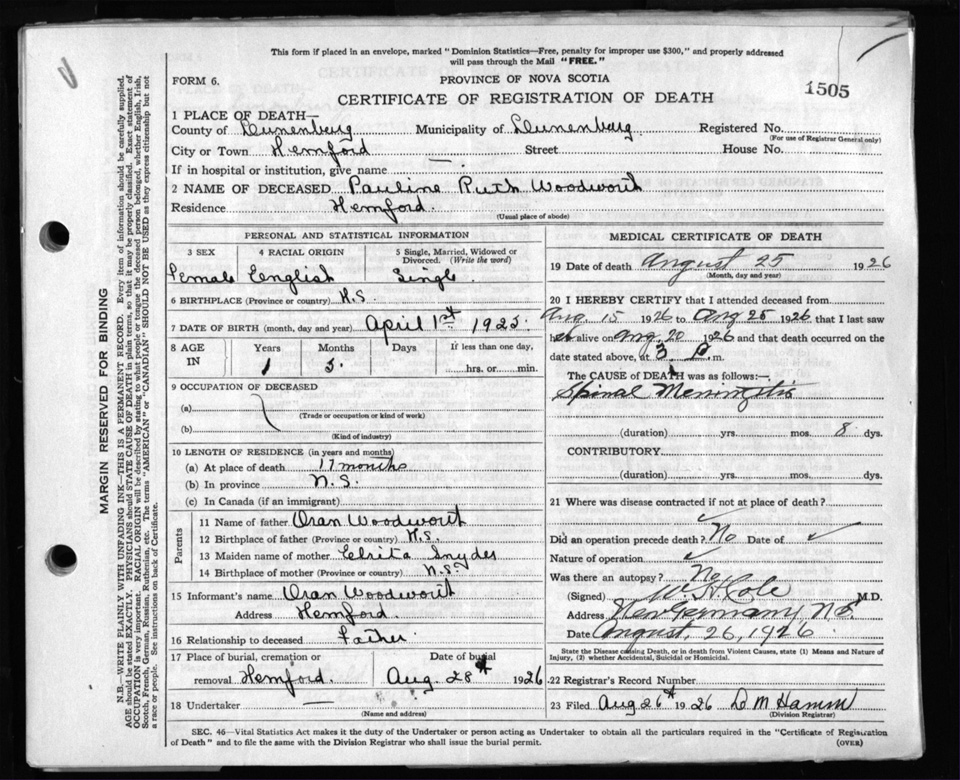 This form if placed in an envelope, marked "Dominion Statistics—Free, penalty for improper use $300," and properly addressed
will pass through the Mail "FREE."
FORM 6.
PROVINCE OF NOVA SCOTIA
1505
CERTIFICATE OF REGISTRATION OF DEATH
1 PLACE OF DEATH—
County of Lunenburg Municipality of Lunenburg Registered No.
(For use of Registrar General only)
City or Town Hemford Street House No.
If in hospital or institution, give name —
2 NAME OF DECEASED Pauline Ruth Woodworth
Residence Hemford.
(Usual place of abode)
PERSONAL AND STATISTICAL INFORMATION
3 SEX 4 RACIAL ORIGIN 5 Single, Married, Widowed or Divorced. (Write the word)
Female English Single
6 BIRTHPLACE (Province or country) N.S.
7 DATE OF BIRTH (month, day and year) April 1st 1925
8 AGE IN Years Months Days If less than one day,
1 5 hrs. or min.
9 OCCUPATION OF DECEASED
(a)
(Trade or occupation or kind of work)
(b)
(Kind of industry)
10 LENGTH OF RESIDENCE (in years and months)
(a) At place of death 17 months
(b) In province N.S.
(c) In Canada (if an immigrant)
Parents
11 Name of father Oran Woodworth
12 Birthplace of father (Province or country) N.S.
13 Maiden name of mother Snyder
14 Birthplace of mother (Province or country) N.S.
15 Informant's name Oran Woodworth
Address Hemford.
16 Relationship to deceased Father
17 Place of burial, cremation or removal Hemford. Date of burial Aug. 28th 1926
18 Undertaker —
(Name and address)
MEDICAL CERTIFICATE OF DEATH
19 Date of death August 25 1926
(Month, day and year)
20 I HEREBY CERTIFY that I attended deceased from
Aug. 15 1926 to Aug 25 1926 that I last saw
her alive on Aug. 20 1926 and that death occurred on the
date stated above, at 3 P. m.
The CAUSE of DEATH was as follows:—
Spinal Meningitis
(duration) yrs. mos. 8 dys.
CONTRIBUTORY
(duration) yrs. mos. dys.
21 Where was disease contracted if not at place of death?
Did an operation precede death? No Date of
Nature of operation
Was there an autopsy? No
(Signed) W. H. Cole M.D.
Address New Germany N.S.
Date August, 26, 1926
State the Disease causing Death, or in death from Violent Causes, state (1) Means and Nature of
Injury, (2) whether Accidental, Suicidal or Homicidal.
22 Registrar's Record Number
23 Filed Aug 26th 1926 D M Hamm
(Division Registrar)
SEC. 46—Vital Statistics Act makes it the duty of the Undertaker or person acting as Undertaker to obtain all the particulars required in the "Certificate of Registration
of Death" and to file the same with the Division Registrar who shall issue the burial permit. (OVER)
MARGIN RESERVED FOR BINDING
N.B.—WRITE PLAINLY WITH UNFADING INK—THIS IS A PERMANENT RECORD. Every item of information should be carefully supplied.
AGE should be stated EXACTLY. PHYSICIANS should STATE CAUSE OF DEATH in plain terms, so that it may be properly classified. Exact statement of
OCCUPATION is very important. RACIAL ORIGIN will be described by stating to what people or tongue the deceased person belonged, whether English, Irish,
Scotch, French, German, Russian, Ruthenian, etc. The terms "AMERICAN" or "CANADIAN" SHOULD NOT BE USED as they express citizenship but not
a race or people. See instructions on back of Certificate.